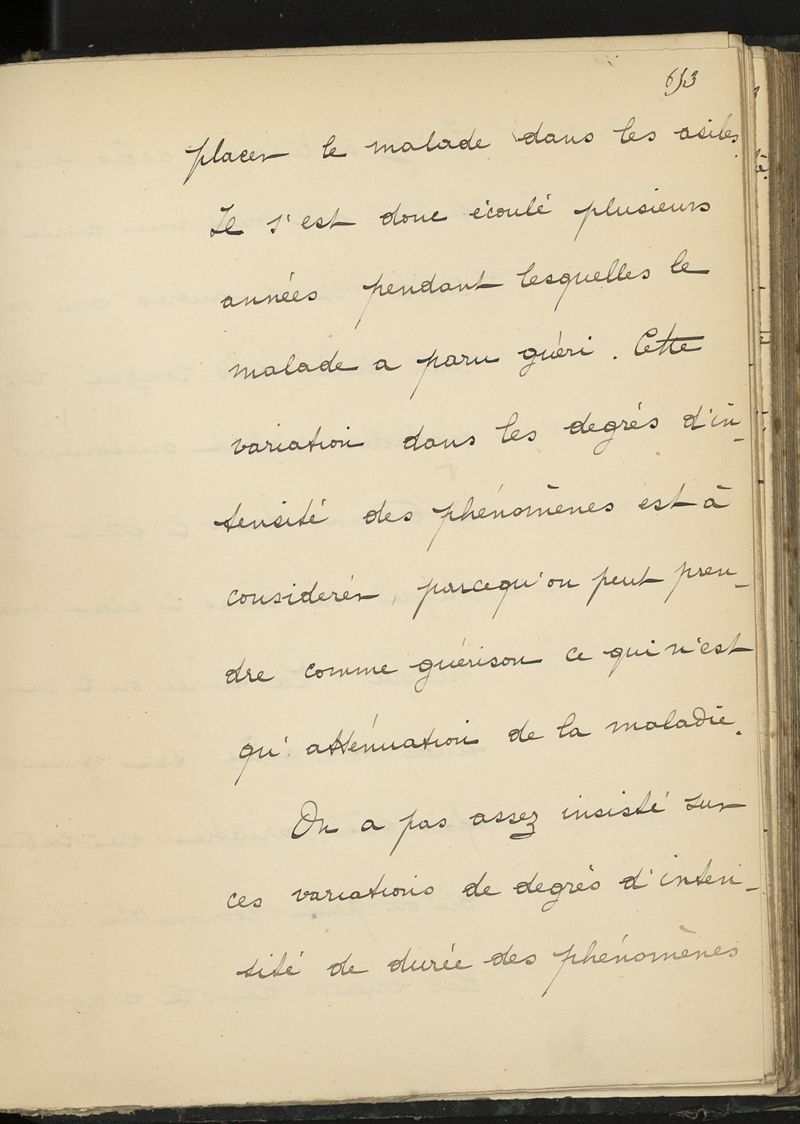 653
placer le malade dans les asiles.
Il s'est donc écoulé plusieurs
années pendant lesquelles le
malade a paru guéri. Cette
variation dans les degrés d'in-
tensité des phénomènes est à
considerér, parcequ'on peut pren-
dre comme guérison ce qui n'est
qu'atténuation de la maladie.
On a pas assez insisté sur
ces variations de degrés d'inten-
sité de durée des phénomènes